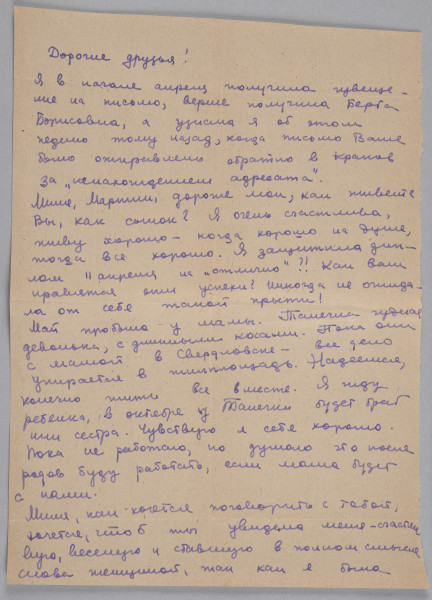 Дорогие друзья!
Я в начале апреля получила извеще-
ние на письмо, вернее получила Берта
Борисовна, а узнала я об этом
неделю тому назад, когда письмо Ваше
было отправлено обратно в Краков
за „ненахождением адресата".
Миля, Мартин, дорогие мои, как живете
Вы, как сынок? Я очень счастлива,
живу хорошо - когда хорошо на душе,
тогда все хорошо. Я защитила дип-
лом 11 апреля на „отлично"!! Как Вам
нравятся эти успехи? Никогда не ожида-
ла от себя такой прыти!
Май пробыла у мамы. Танечка чудная
девочка, с длинными косами. Пока они
с мамой в Свердловске - все дело
упирается в жилплощадь. Надеемся,
конечно жить все вместе. Я жду
ребенка, в октябре у Танечки будет брат
или сестра. Чувствую я себя хорошо.
Пока не работаю, но думаю что после
родов буду работать, если мама будет
с нами.
Миля, как хочется поговорить с тобой,
хочется, чтоб ты увидела меня - счастли
вую, веселую и ставшую в полном смысле
слова женщиной, так как я была